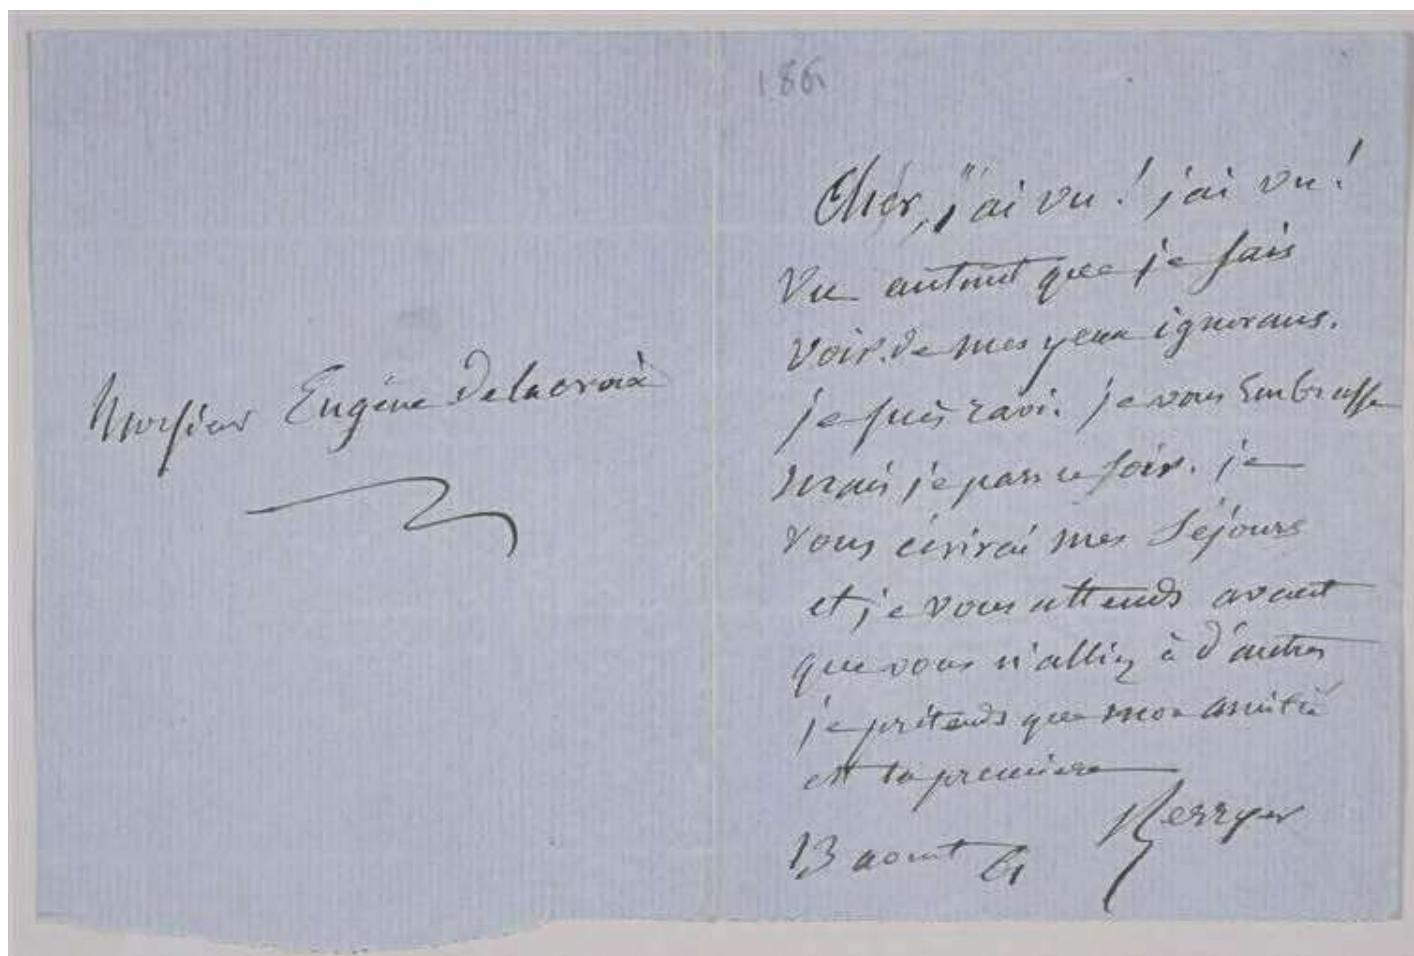 Monsieur Eugène Delacroix
1861
Cher, j'ai vu ! j'ai vu !
Vu autant que je sais
voir. de mes yeux ignorans.
je suis ravi. je vous Embrasse
mais je pars ce soir. je
vous écrirai mes séjours
et je vous attends avant
que vous n'alliez à d'autres
je prétends que mon amitié
est la première
Berryer
13 aout 61